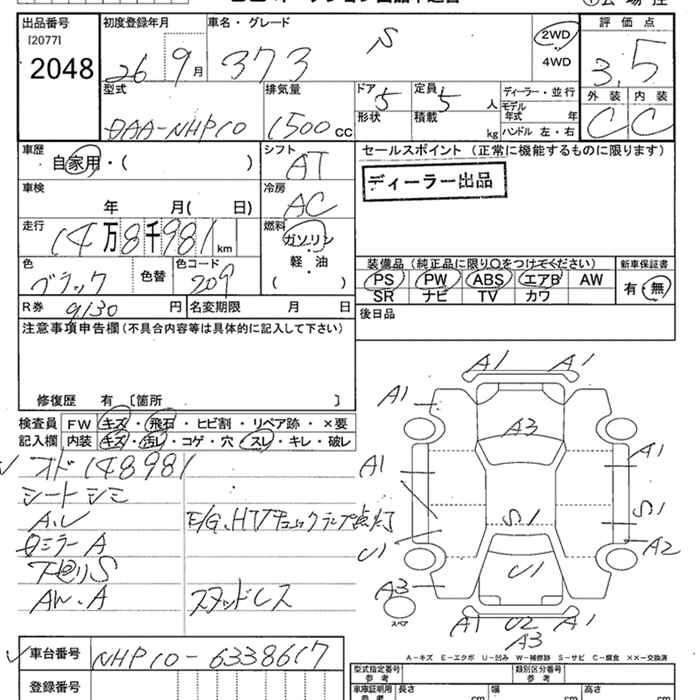 出品番号 初度登録年月 車名・グレード 評価点
[2077]
2048 26 9月 373 S 2WD 3.5
4WD
型式 排気量 ドア 定員 ディーラー・並行 外装 内装
DAA-NHP10 1500cc 5 5人 モデル年式 年 C C
形状 積載 kg ハンドル 左・右
車歴 シフト セールスポイント (正常に機能するものに限ります)
自家用・( ) AT
ディーラー出品
車検 冷房
年 月( 日) AC
走行 燃料
14万8千981km ガソリン
軽・油
色 色替 色コード ( ) 装備品 (純正品に限り○をつけてください) 新車保証書
ブラック 209 PS PW ABS エアB AW 有・無
SR ナビ TV カワ
R券 9130円 名変期限 月 日 後日品
注意事項申告欄 (不具合内容等は具体的に記入して下さい)
修復歴 有 〔箇所 〕
検査員 FW キズ・飛石・ヒビ割・リペア跡・×要
記入欄 内装 キズ・汚レ・コゲ・穴・スレ・キレ・破レ
オド148981
シートシミ
A.U
E/G、HVチェックランプ点灯
ミラーA
下回りS
AW.A スタッドレス
A1 A1
A1
A3
A1 A1
S1 S1
U1 A2
U1
A3
スペア
A1 U2 A1
A3
車台番号 NHP10-6338617
A-キズ E-エクボ U-凹み W-補修跡 S-サビ C-腐食 ××-交換済
登録番号 型式指定番号 参考 類別区分番号 参考
車庫証明用 参考 長さ cm 幅 cm 高さ cm